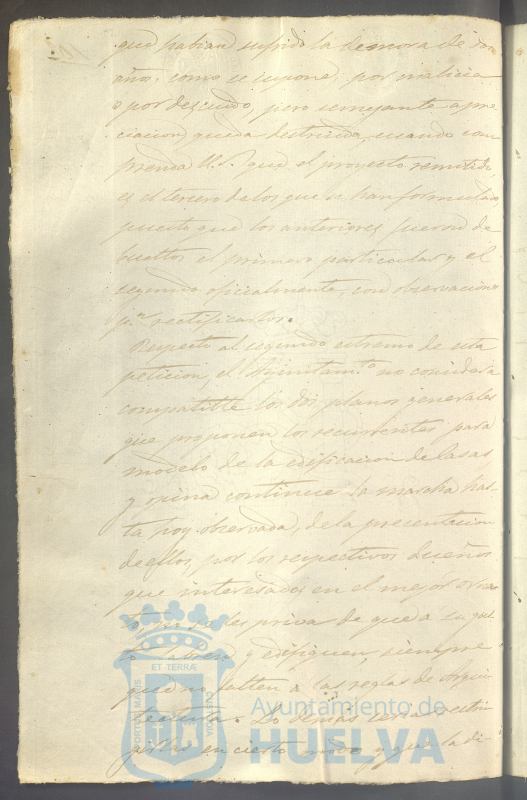 que habian sufrido la demora de dos
años, como se supone, por malicia
o por descuido, pero semejante apre
ciacion queda destruida, cuando com
prenda U.S. que el proyecto remitido,
es el tercero de los que se han formulado
puesto que los anteriores fueron de
vueltos el primero particular y el
segundo oficialmente, con observaciones
pª rectificarlos.
Respecto al segundo estremo de esta
peticion, el Ayuntam.to no considera
compatible los dos planos generales
que proponen los recurrentes para
modelo de la edificacion de casas
y opina continue la marcha has
ta hoy observada, de la presentacion
de ellos, por los respectivos dueños
que interesados en el mejor orna
to, no se les priva de que a su gus
to labren y edifiquen, siempre
que no falten a las reglas de Arqui
tectura. Lo demas seria restrin
girlos en cierto modo y que la di
ET TERRÆ
PORTUS MARIS
CUSTODIA
Ayuntamiento de
HUELVA